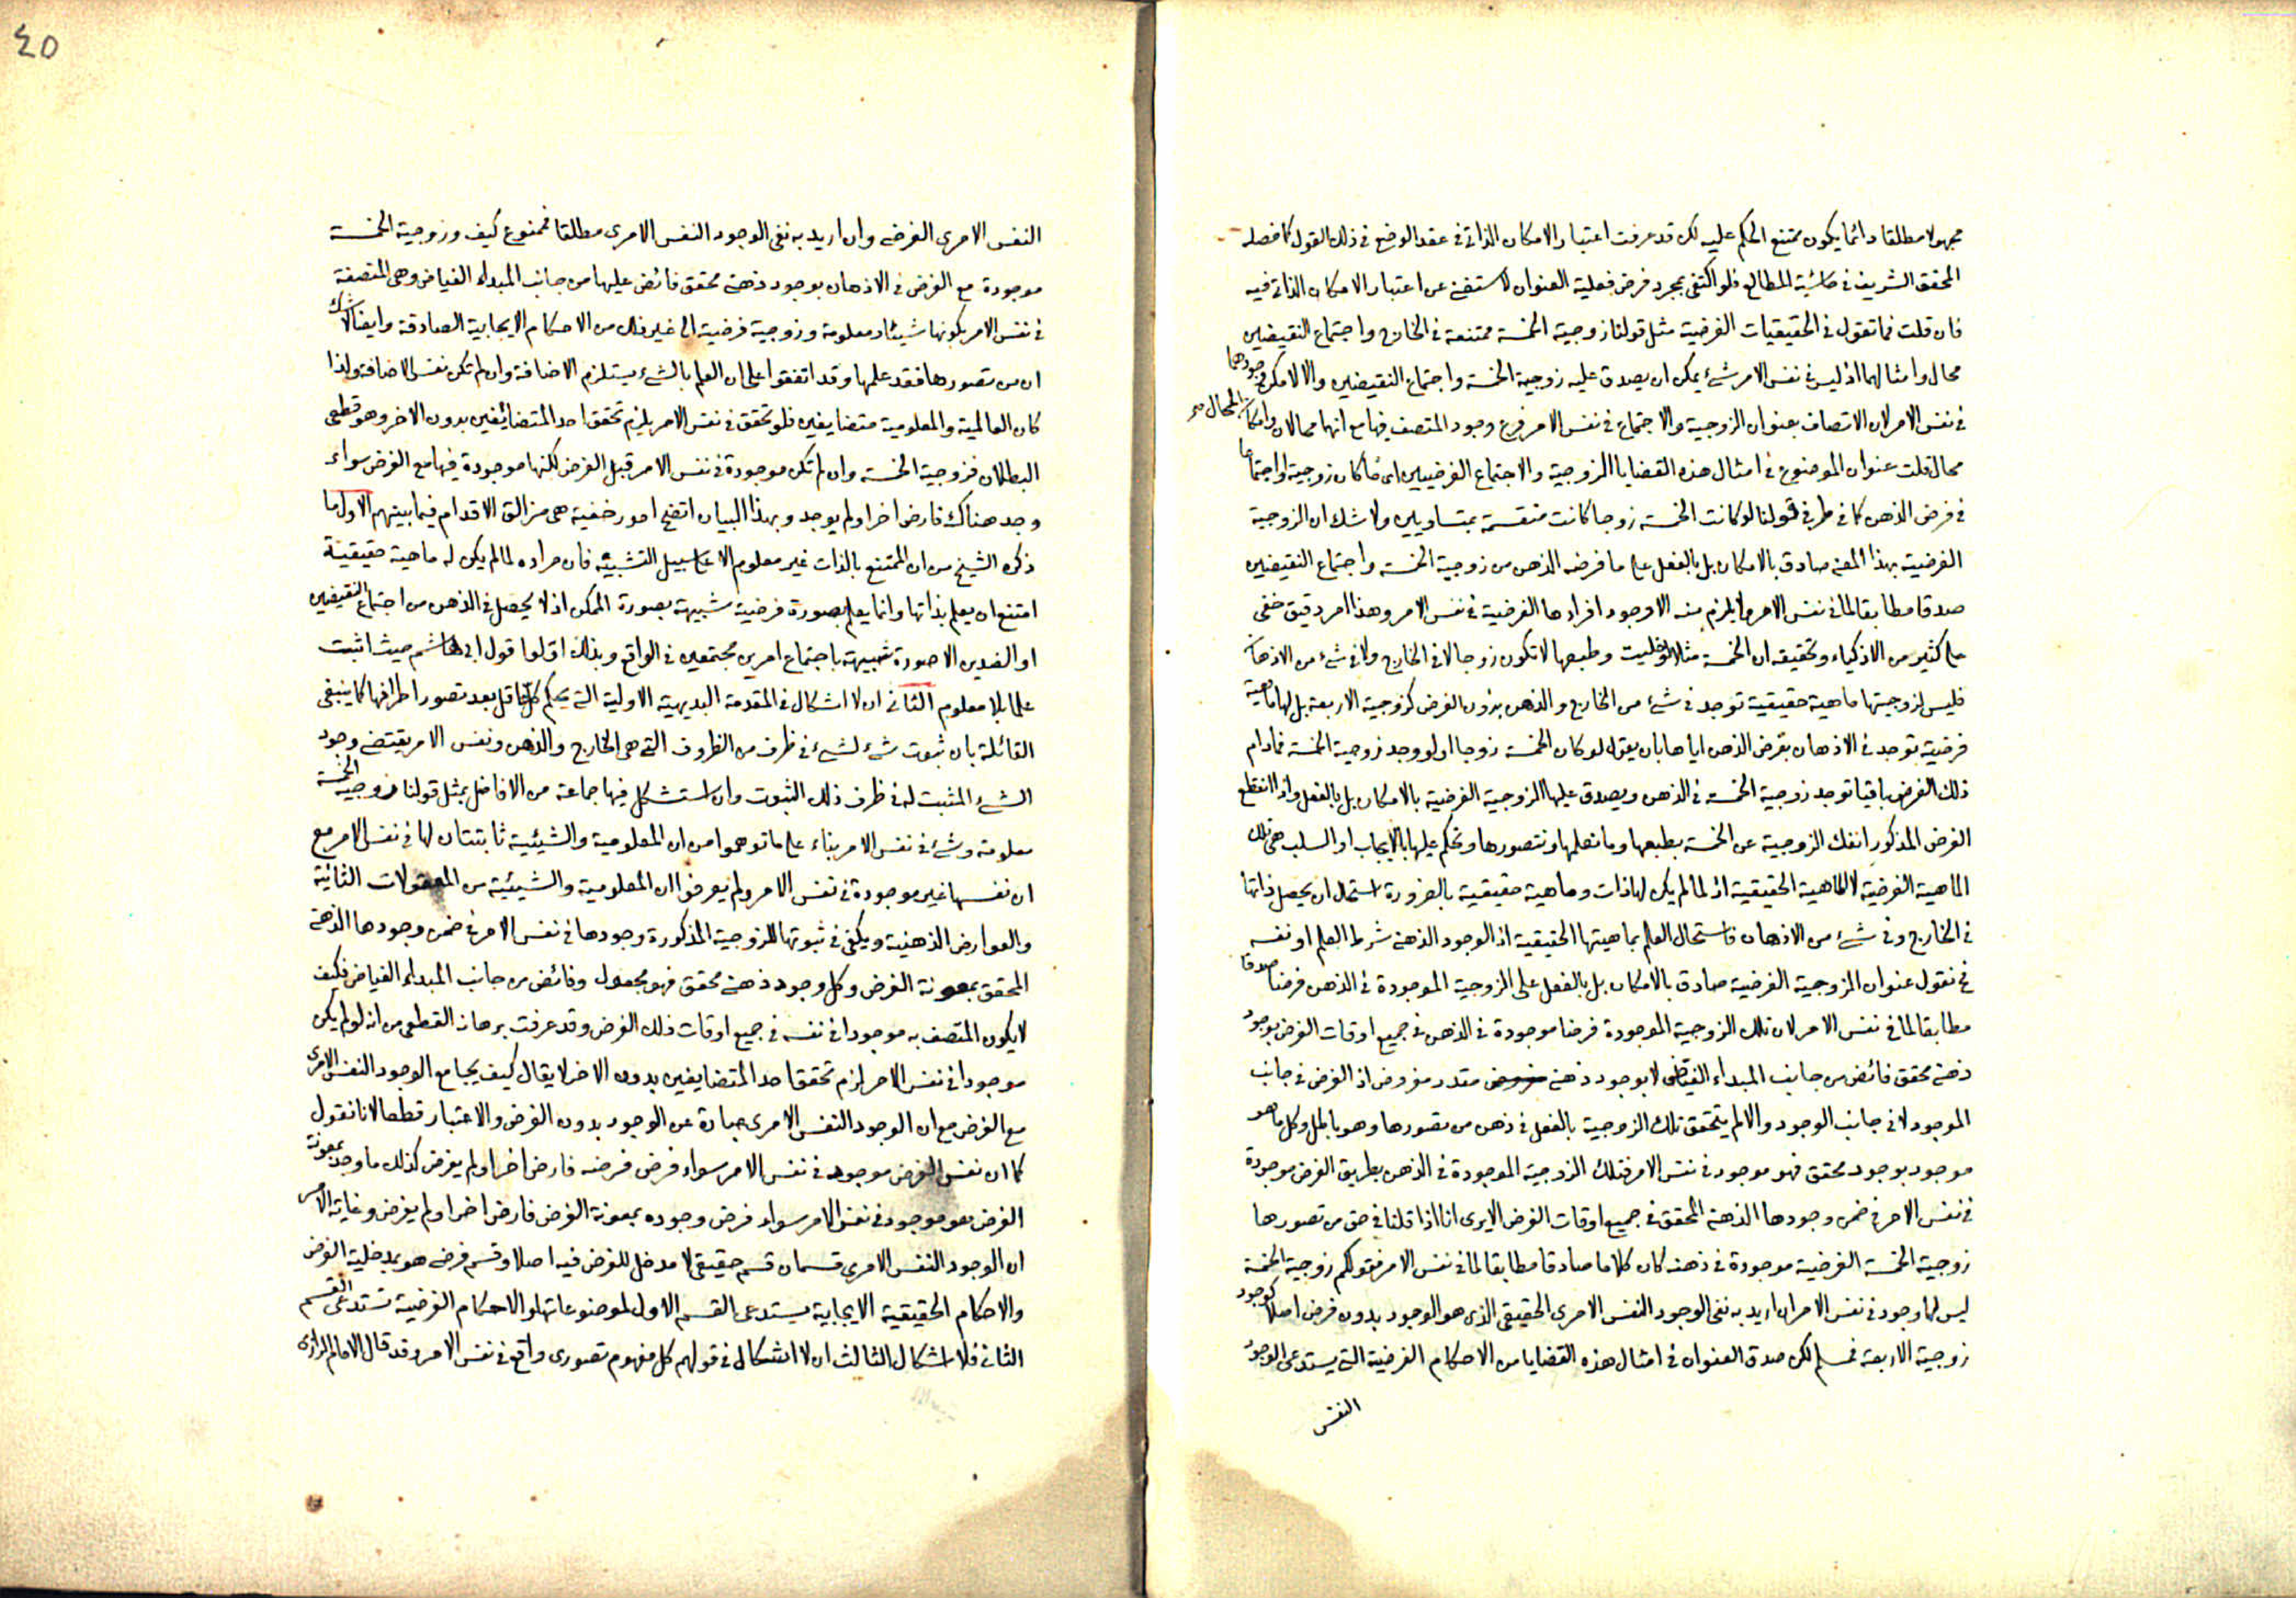 مجهولا مطلقا دائما يكون ممتنع الحكم عليه لكن قد عرفت اعتبار الامكان الذاتى فى عقد الوضع فى ذلك القول كما فصله
المحقق الشريف فى حاشية المطالع فلو اكتفى بمجرد فرض فعلية العنوان لاستغنى عن اعتبار الامكان الذاتى فيه
فان قلت فما تقول فى الحقيقيات الفرضية مثل قولنا زوجية الخمسة ممتنعة فى الخارج واجتماع النقيضين
محال وامثالهما اذ ليس فى نفس الامر شىء يمكن ان يصدق عليه زوجية الخمسة واجتماع النقيضين والا لامكن وجودهما
فى نفس الامر لان الاتصاف بعنوان الزوجية والاجتماع فى نفس الامر فرع وجود المتصف فيها مع انهما محالان وامكان المحال
محال قلت عنوان الموضوع فى امثال هذه القضايا الزوجية والاجتماع الفرضيين اى ما كان زوجية او اجتماعا
فى فرض الذهن كما فى طرفى قولنا لو كانت الخمسة زوجا كانت منقسمة بمتساويين ولا شك ان الزوجية
الفرضية بهذا المعنى صادق بالامكان بل بالفعل على ما فرضه الذهن من زوجية الخمسة واجتماع النقيضين
صدقا مطابقا لما فى نفس الامر ولا يلزم منه الا وجود افرادها الفرضية فى نفس الامر وهذا امر دقيق خفى
على كثير من الاذكياء وتحقيقه ان الخمسة مثلا لو خليت وطبعها لا تكون زوجا لا فى الخارج ولا فى شىء من الاذهان
فليس لزوجيتها ماهية حقيقية توجد فى شىء من الخارج والذهن بدون الفرض كزوجية الاربعة بل لها ماهية
فرضية توجد فى الاذهان بفرض الذهن اياها بان يقول لو كان الخمسة زوجا او لو وجد زوجية الخمسة فمادام
ذلك الفرض باقيا توجد زوجية الخمسة فى الذهن ويصدق عليها الزوجية الفرضية بالامكان بل بالفعل واذا انقطع
الفرض المذكور انفك الزوجية عن الخمسة بطبعها وما نعلمها ونتصورها ونحكم عليها بالايجاب او السلب هى تلك
الماهية الفرضية لا الماهية الحقيقية اذ لما لم يكن لها ذات وماهية حقيقية بالضرورة استحال ان يحصل ذاتها
فى الخارج وفى شىء من الاذهان فاستحال العلم بماهيتها الحقيقية اذ الوجود الذهنى شرط العلم او نفسه
فح نقول عنوان الزوجية الفرضية صادق بالامكان بل بالفعل على الزوجية الموجودة فى الذهن فرضا صدقا
مطابقا لما فى نفس الامر لان تلك الزوجية الموجودة فرضا موجودة فى الذهن فى جميع اوقات الفرض بوجود
ذهنى محقق فائض من جانب المبداء الفياض لا بوجود ذهنى مقدر مفروض اذ الفرض فى جانب
الموجود لا فى جانب الوجود والا لم يتحقق تلك الزوجية بالفعل فى ذهن من تصورها وهو باطل وكل ما هو
موجود بوجود محقق فهو موجود فى نفس الامر فتلك الزوجية الموجودة فى الذهن بطريق الفرض موجودة
فى نفس الامر فى ضمن وجودها الذهنى المحقق فى جميع اوقات الفرض الا يرى انا اذا قلنا فى حق من تصورها
زوجية الخمسة الفرضية موجودة فى ذهنه كان كلاما صادقا مطابقا لما فى نفس الامر فقولكم زوجية الخمسة
ليس لها وجود فى نفس الامر ان اريد به نفى الوجود النفس الامرى الحقيقى الذى هو الوجود بدون فرض اصلا كوجود
زوجية الاربعة فمسلم لكن صدق العنوان فى امثال هذه القضايا من الاحكام الفرضية التى يستدعى الوجود
النفس
٤٥
النفس الامرى الفرضى وان اريد به نفى الوجود النفس الامرى مطلقا فممنوع كيف وزوجية الخمسة
موجودة مع الفرض فى الاذهان بوجود ذهنى محقق فائض عليها من جانب المبداء الفياض وهى المتصفة
فى نفس الامر بكونها شيئا ومعلومة وزوجية فرضية الى غير ذلك من الاحكام الايجابية الصادقة وايضا لا شك
ان من تصورها فقد علمها وقد اتفقوا على ان العلم بالشىء يستلزم الاضافة وان لم تكن نفس الاضافة ولذا
كان العالمية والمعلومية متضايفين فلو تحقق فى نفس الامر يلزم تحقق احد المتضائفين بدون الاخر وهو قطعى
البطلان فزوجية الخمسة وان لم تكن موجودة فى نفس الامر قبل الفرض لكنها موجودة فيها مع الفرض سواء
وجد هناك فارض اخر او لم يوجد وبهذا البيان اتضح امور خفية هى مزالق الاقدام فيما بينهم الاول ما
ذكره الشيخ من ان الممتنع بالذات غير معلوم الا على سبيل التشبيه فان مراده لما لم يكن له ماهية حقيقية
امتنع ان يعلم بذاتها وانما يعلم بصورة فرضية شبيهة بصورة الممكن اذ لا يحصل فى الذهن من اجتماع النقيضين
او الضدين الا صورة شبيهة باجتماع امرين مجتمعين فى الواقع وبذلك اولوا قول ابى هاشم حيث اثبت
علما بلا معلوم الثانى ان لا اشكال فى المقدمة البديهية الاولية التى يحكم كل عاقل بعد تصور اطرافها كما ينبغى
القائلة بان ثبوت شىء لشىء فى ظرف من الظروف التى هى الخارج والذهن ونفس الامر يقتضى وجود
الشىء المثبت له فى ظرف ذلك الثبوت وان استشكل فيها جماعة من الافاضل بمثل قولنا زوجية الخمسة
معلومة وشىء فى نفس الامر بناء على ما توهموا من ان المعلومية والشيئية ثابتتان لها فى نفس الامر مع
ان نفسها غير موجودة فى نفس الامر ولم يعرفوا ان المعلومية والشيئية من المعقولات الثانية
والعوارض الذهنية ويكفى فى ثبوتها للزوجية المذكورة وجودها فى نفس الامر فى ضمن وجودها الذهنى
المحقق بمعونة الفرض وكل وجود ذهنى محقق فهو مجعول وفائض من جانب المبداء الفياض فكيف
لا يكون المتصف به موجودا فى نفسه فى جميع اوقات ذلك الفرض وقد عرفت برهانه القطعى من انه لو لم يكن
موجودا فى نفس الامر لزم تحقق احد المتضايفين بدون الاخر لا يقال كيف يجامع الوجود النفس الامرى
مع الفرض مع ان الوجود النفس الامرى عبارة عن الوجود بدون الفرض والاعتبار قطعا لانا نقول
كما ان نفس الفرض موجود فى نفس الامر سواء فرض فرضه فارض اخر او لم يفرض كذلك ما وجد بمعونة
الفرض هو موجود فى نفس الامر سواء فرض وجوده بمعونة الفرض فارض اخر او لم يفرض وغاية الامر
ان الوجود النفس الامرى قسمان قسم حقيقى لا مدخل للفرض فيه اصلا وقسم فرضى هو بمدخلية الفرض
والاحكام الحقيقية الايجابية يستدعى القسم الاول لموضوعاتها والاحكام الفرضية تستدعى القسم
الثانى فلا اشكال الثالث ان لا اشكال فى قولهم كل مفهوم تصورى واقع فى نفس الامر وقد قال الامام الرازى